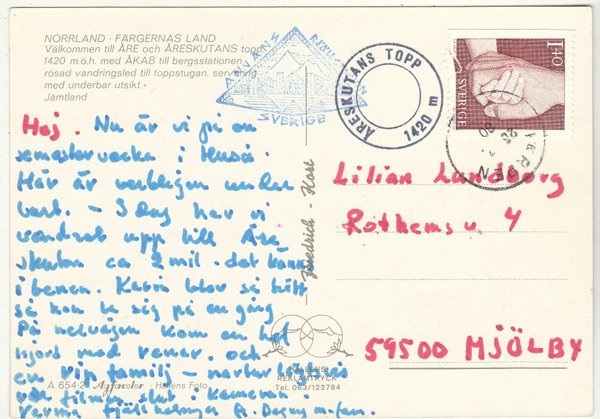 NORRLAND - FÄRGERNAS LAND
Välkommen till ÅRE och ÅRESKUTANS topp
1420 m.ö.h. med ÅKAB till bergsstationen,
rösad vandringsled till toppstugan, servering
med underbar utsikt.
Jämtland
SVERIGE
ÅRESKUTANS TOPP
1420 m
1.40
SVERIGE
Hej. Nu är vi på en
semestervecka i Huså
Här är verkligen under
bart. - I dag har vi
vandrat upp till Åre
skutan ca 2 mil. det känns
i benen. Karin blev så trött
så hon la sig på en gång
På nervägen kom en hel
hjord med renar. och
en rip familj -
var filmen slut i kameran
Varma fjällhälsningar fr. Dagny m. fam.
Lilian Landborg
Rothems v. 4
59500 MJÖLBY
Friedrich - Kort
HALLENS
REKLAMTRYCK
Tel. 063/122784
A 654:2 Agfacolor Hallens Foto